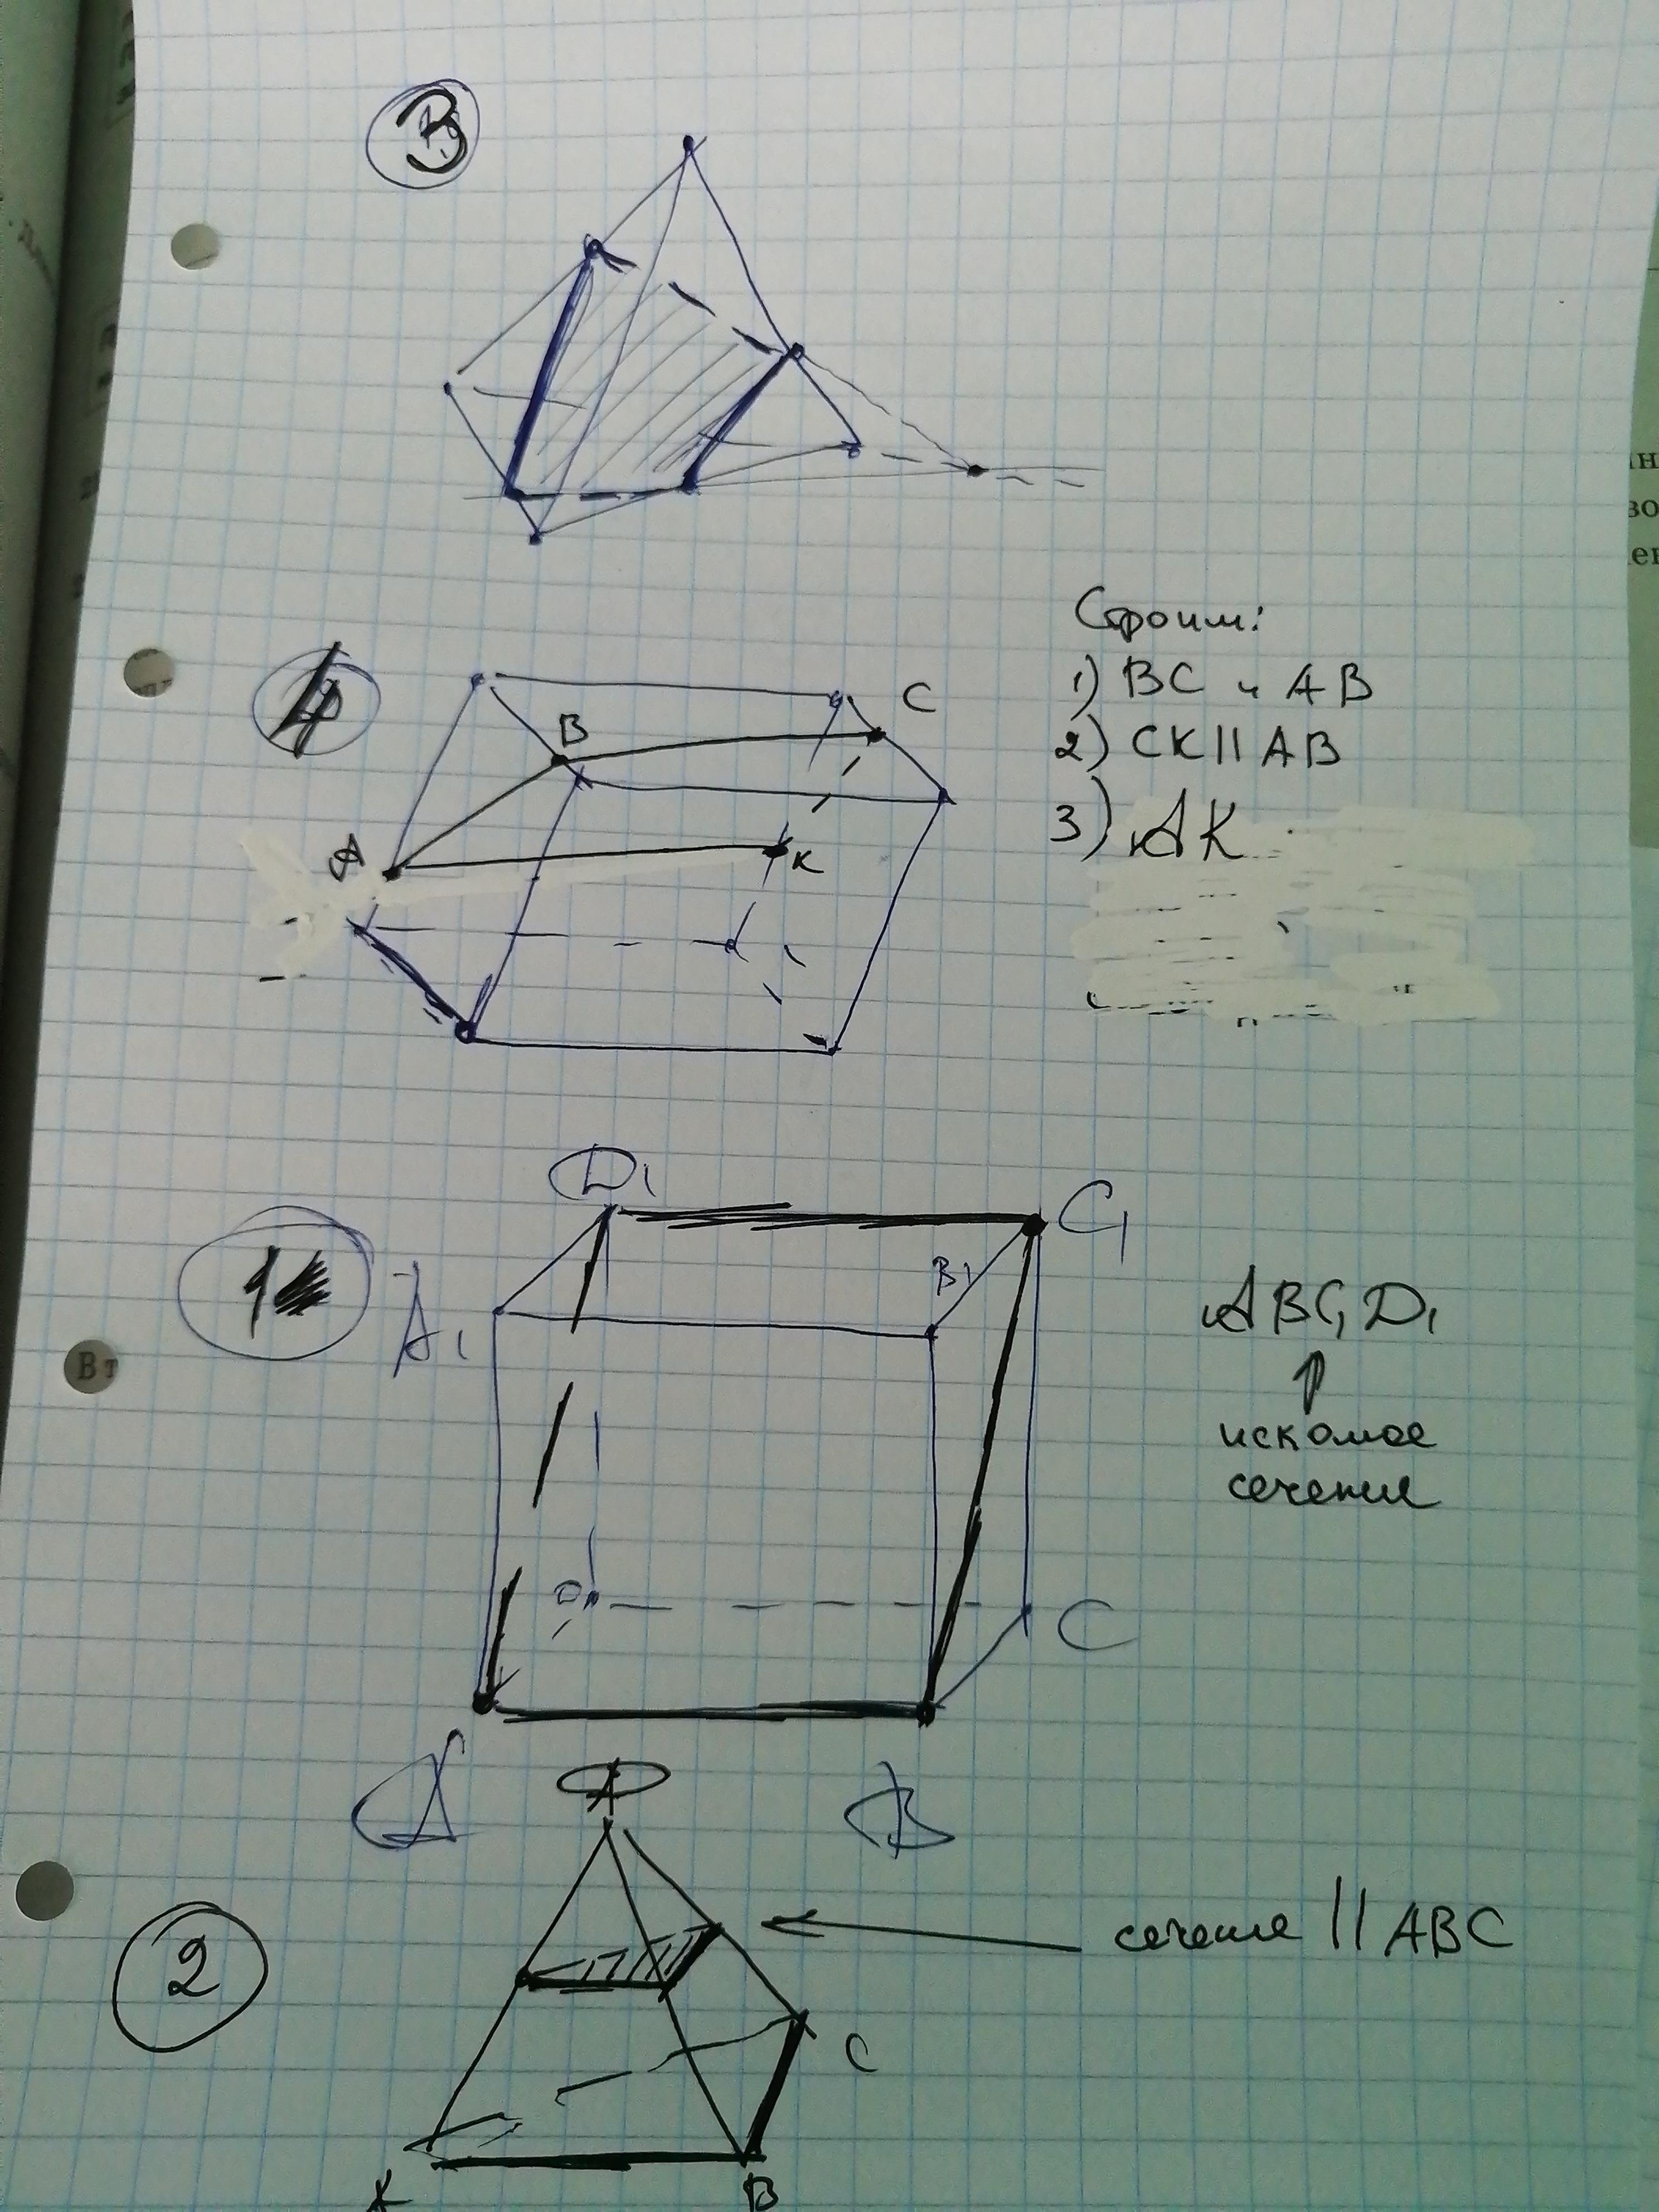 3
4
B
C
A
K
Строим:
1) BC и AB
2) CK || AB
3) AK
1
D₁
C₁
A₁
B₁
D
C
A
B
ABC₁D₁
искомое
сечение
2
сечение || ABC
C
B